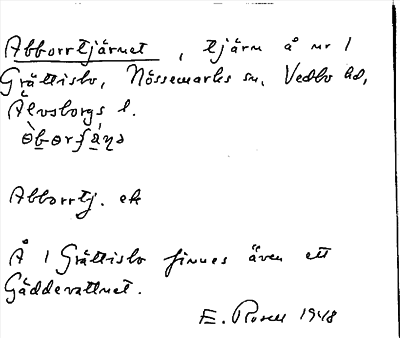 Abborrtjärnet, tjärn å nr 1
Grättisbo, Nössemarks sn, Vedbo hd,
Älvsborgs l.
Abborrtj. ek
Å 1 Grättisbo finnes även ett
Gäddevattnet.
E. Rosell 1948